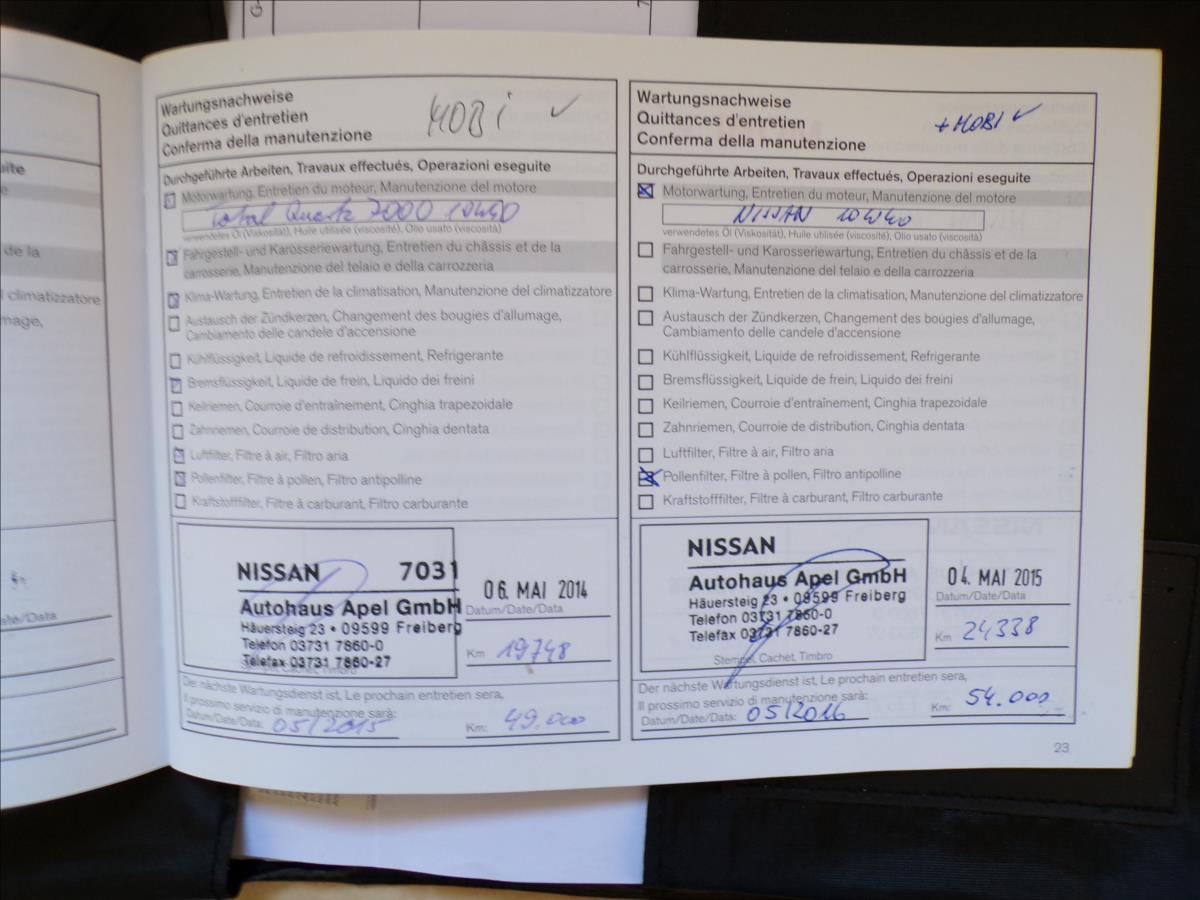 uite
de la
l climatizzatore
umage,
ate/Data
Wartungsnachweise
Quittances d'entretien
Conferma della manutenzione
MOBi ✓
Durchgeführte Arbeiten, Travaux effectués, Operazioni eseguite
Motorwartung, Entretien du moteur, Manutenzione del motore
Total Quartz 7000 10W40
verwendetes Öl (Viskosität), Huile utilisée (viscosité), Olio usato (viscosità)
Fahrgestell- und Karosseriewartung, Entretien du châssis et de la
carrosserie, Manutenzione del telaio e della carrozzeria
Klima-Wartung, Entretien de la climatisation, Manutenzione del climatizzatore
Austausch der Zündkerzen, Changement des bougies d'allumage,
Cambiamento delle candele d'accensione
Kühlflüssigkeit, Liquide de refroidissement, Refrigerante
Bremsflüssigkeit, Liquide de frein, Liquido dei freini
Keilriemen, Courroie d'entraînement, Cinghia trapezoidale
Zahnriemen, Courroie de distribution, Cinghia dentata
Luftfilter, Filtre à air, Filtro aria
Pollenfilter, Filtre à pollen, Filtro antipolline
Kraftstofffilter, Filtre à carburant, Filtro carburante
NISSAN 7031
Autohaus Apel GmbH
Häuersteig 23 • 09599 Freiberg
Telefon 03731 7860-0
Telefax 03731 7860-27
Stempel, Cachet, Timbro
06. MAI 2014
Datum/Date/Data
Km 19748
Der nächste Wartungsdienst ist, Le prochain entretien sera,
Il prossimo servizio di manutenzione sarà:
Datum/Date/Data: 05/2015
Km: 49.000
Wartungsnachweise
Quittances d'entretien
Conferma della manutenzione
+ MOBI ✓
Durchgeführte Arbeiten, Travaux effectués, Operazioni eseguite
Motorwartung, Entretien du moteur, Manutenzione del motore
NISSAN 10W40
verwendetes Öl (Viskosität), Huile utilisée (viscosité), Olio usato (viscosità)
Fahrgestell- und Karosseriewartung, Entretien du châssis et de la
carrosserie, Manutenzione del telaio e della carrozzeria
Klima-Wartung, Entretien de la climatisation, Manutenzione del climatizzatore
Austausch der Zündkerzen, Changement des bougies d'allumage,
Cambiamento delle candele d'accensione
Kühlflüssigkeit, Liquide de refroidissement, Refrigerante
Bremsflüssigkeit, Liquide de frein, Liquido dei freini
Keilriemen, Courroie d'entraînement, Cinghia trapezoidale
Zahnriemen, Courroie de distribution, Cinghia dentata
Luftfilter, Filtre à air, Filtro aria
Pollenfilter, Filtre à pollen, Filtro antipolline
Kraftstofffilter, Filtre à carburant, Filtro carburante
NISSAN
Autohaus Apel GmbH
Häuersteig 23 • 09599 Freiberg
Telefon 03731 7860-0
Telefax 03731 7860-27
Stempel, Cachet, Timbro
04. MAI 2015
Datum/Date/Data
Km 24338
Der nächste Wartungsdienst ist, Le prochain entretien sera,
Il prossimo servizio di manutenzione sarà:
Datum/Date/Data: 05/2016
Km: 54.000
23